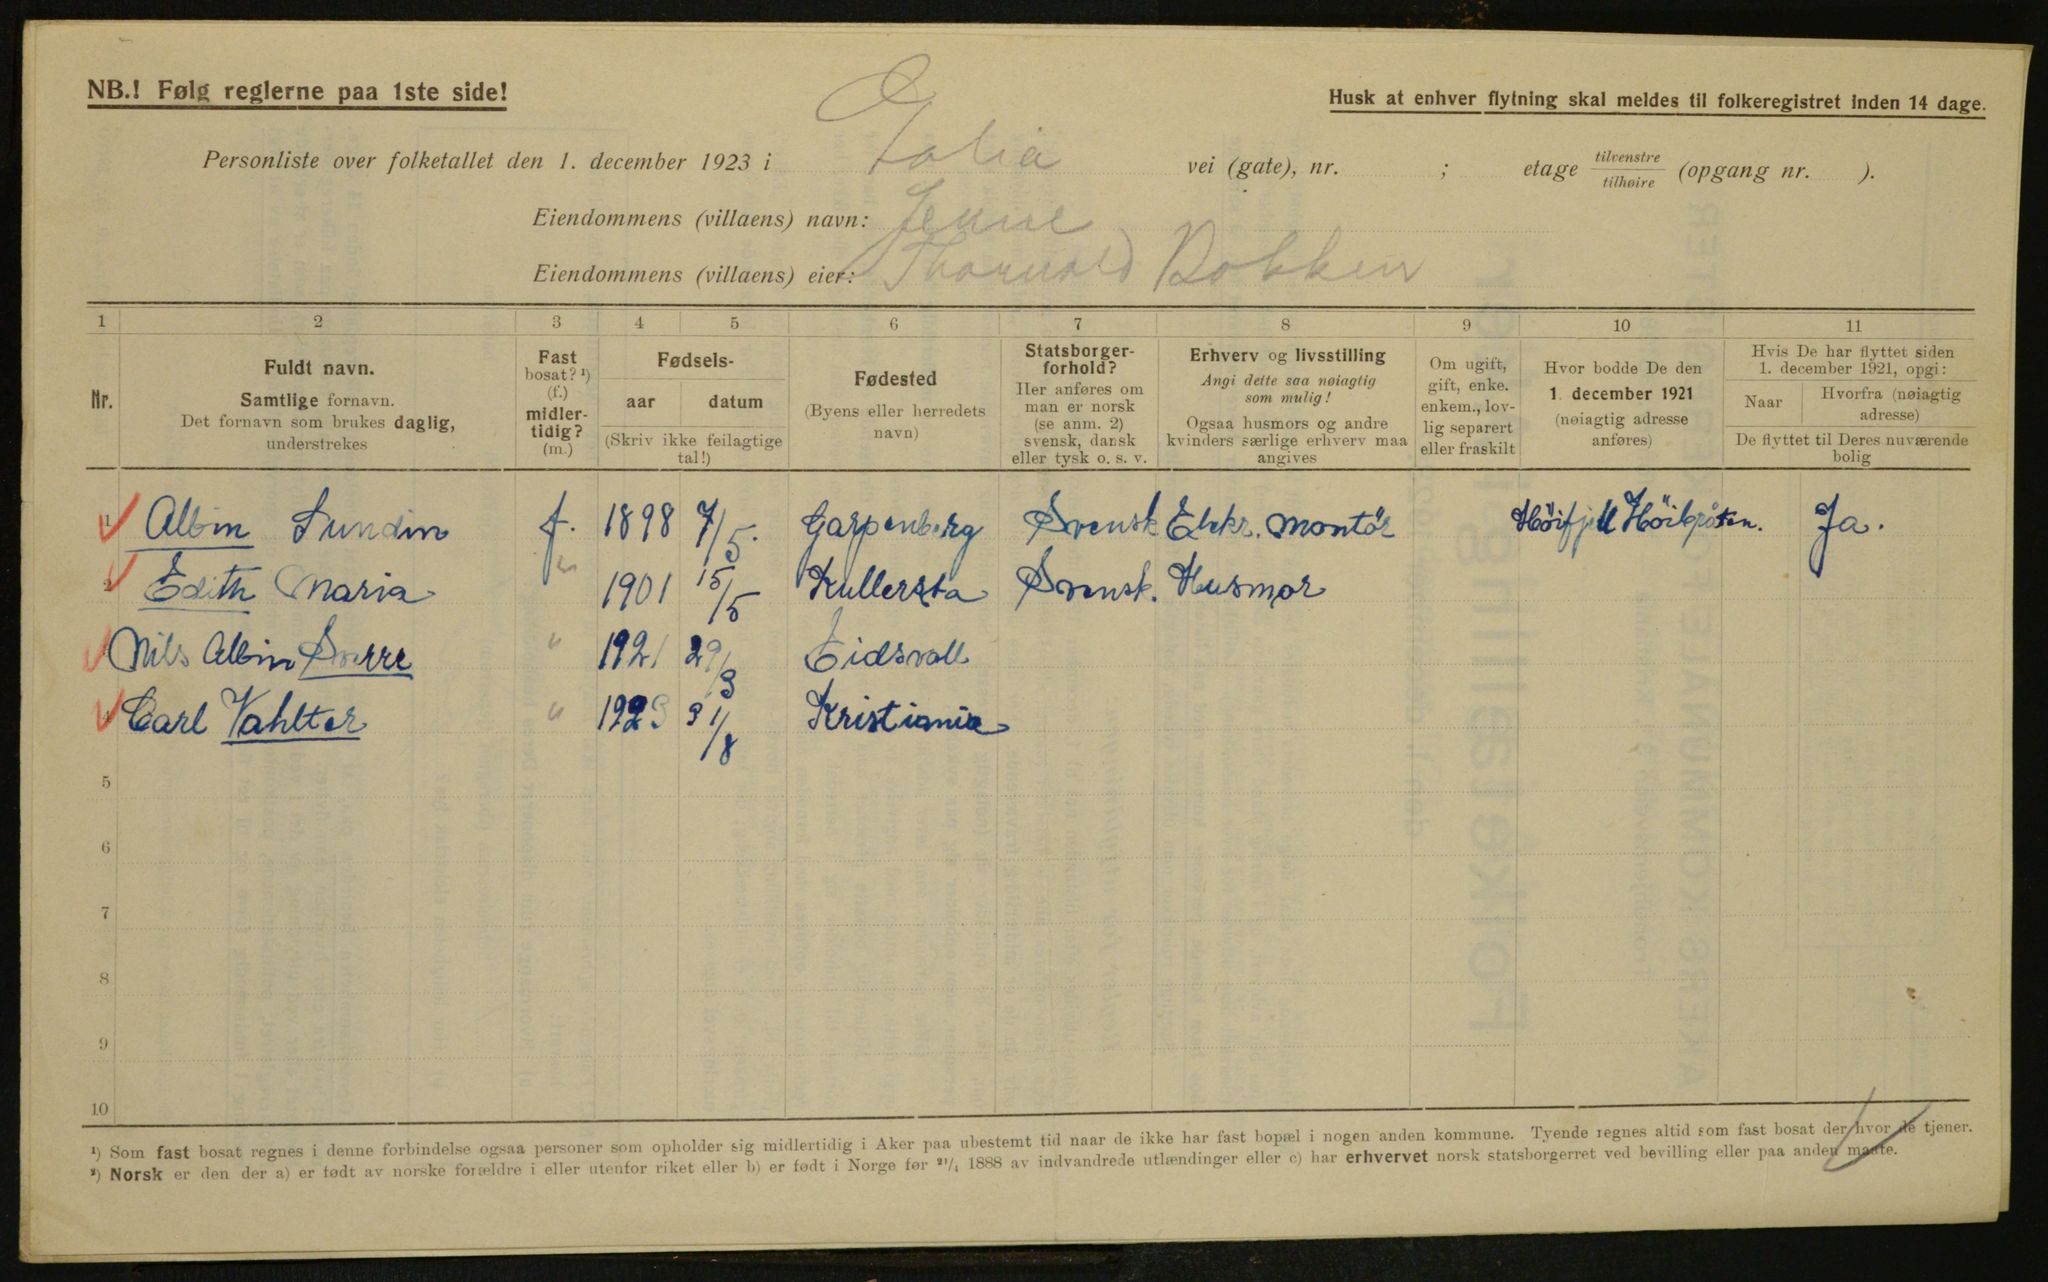 NB.! Følg reglerne paa 1ste side!
Husk at enhver flytning skal meldes til folkeregistret inden 14 dage.
Personliste over folketallet den 1. december 1923 i vei (gate), nr. ; etage tilvenstre/tilhøire (opgang nr. ).
Eiendommens (villaens) navn:
Eiendommens (villaens) eier: Thorvald Bakken
1 2 3 4 5 6 7 8 9 10 11
Nr.
Fuldt navn.
Samtlige fornavn.
Det fornavn som brukes daglig,
understrekes
Fast
bosat? ¹)
(f.)
midler-
tidig?
(m.)
Fødsels-
aar datum
(Skriv ikke feilagtige
tal!)
Fødested
(Byens eller herredets
navn)
Statsborger-
forhold?
Her anføres om
man er norsk
(se anm. 2)
svensk, dansk
eller tysk o. s. v.
Erhverv og livsstilling
Angi dette saa nøiagtig
som mulig!
Ogsaa husmors og andre
kvinders særlige erhverv maa
angives
Om ugift,
gift, enke.
enkem., lov-
lig separert
eller fraskilt
Hvor bodde De den
1. december 1921
(nøiagtig adresse
anføres)
Hvis De har flyttet siden
1. december 1921, opgi:
Naar
Hvorfra (nøiagtig
adresse)
De flyttet til Deres nuværende
bolig
1 Albin Lundin f. 1898 7/5. Garpenberg Svensk Elekr. Montör Höifjell Ja.
2 Edith Maria " 1901 15/5 Kullersta Svensk. Husmor
Nils Albin Sverre " 1921 29/3 Eidsvall
4 Carl Vahlter " 1923 31/8 Kristiania
5
6
7
8
9
10
¹) Som fast bosat regnes i denne forbindelse ogsaa personer som opholder sig midlertidig i Aker paa ubestemt tid naar de ikke har fast bopæl i nogen anden kommune. Tyende regnes altid som fast bosat der hvor de tjener.
²) Norsk er den der a) er født av norske forældre i eller utenfor riket eller b) er født i Norge før ²¹/₄ 1888 av indvandrede utlændinger eller c) har erhvervet norsk statsborgerret ved bevilling eller paa anden maate.